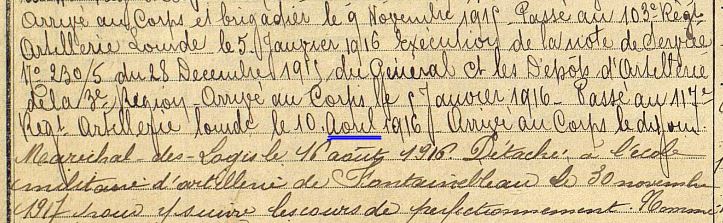 Arrivé au Corps et brigadier le 9 Novembre 1915 - Passé au 103e Régt
Artillerie Lourde le 5 Janvier 1916 Exécution de la note de Service
No 230/5 du 28 Decembre 1915 du Général Ct les Dépôts d'Artillerie
de la 3e Région - Arrivé au Corps le 5 Janvier 1916 - Passé au 117e
Régt Artillerie lourde le 10 Avril 1916 Arrivé au Corps le dit jour.
Maréchal-des-Logis le 16 août 1916. Détaché à l'école
militaire d'artillerie de Fontainebleau le 30 novembre
1917 pour y suivre les cours de perfectionnement. Nommé